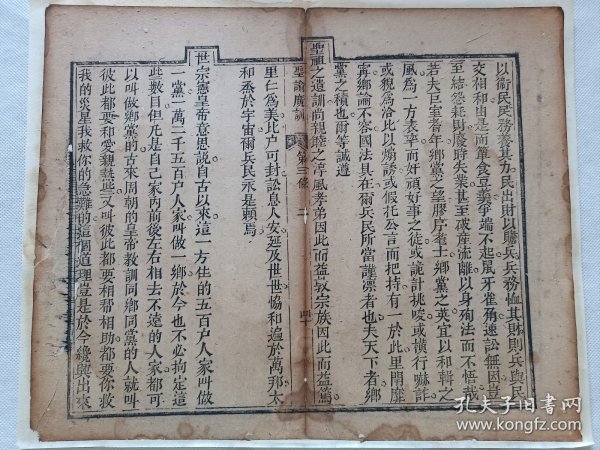 以衛民民務養其力民出財以贍兵兵務恤其財則兵與民
交相和由是而簞食豆羹爭端不起鼠牙雀角速訟無因豈
至結怨耗財廢時失業甚至破產流離以身殉法而不悟哉
若夫巨室耆年鄉黨之望膠庠髦士鄉黨之英宜以和輯之
風為一方表率而奸頑好事之徒或詭計挑唆或橫行嚇詐
或貌為洽比以煽誘或假托公言而把持有一於此里閈靡
寧鄉論不容國法具在爾兵民所當謹凜者也夫天下者鄉
黨之積也爾等誠遵
聖祖之遺訓尚親睦之淳風孝弟因此而益敦宗族因此而益篤
聖諭廣訓 第三條 四十
里仁為美比戶可封訟息人安延及世世協和遍於萬邦太
和烝於宇宙爾兵民永是賴焉
世宗憲皇帝意思説自古以來這一方住的五百户人家叫做
一黨一萬二千五百户人家叫做一鄉於今也不必拘定這
此數目但凡是自己家内前後左右相去不遠的人家都可
以叫做鄉黨的古來周朝的皇帝教訓同鄉同黨的人就叫
彼此都要和愛親熱些又叫彼此都要相幫相助都要你救
我的災星我救你的急難的這個道理豈是於今纔興出來
孔夫子旧书网
www.kongfz.com